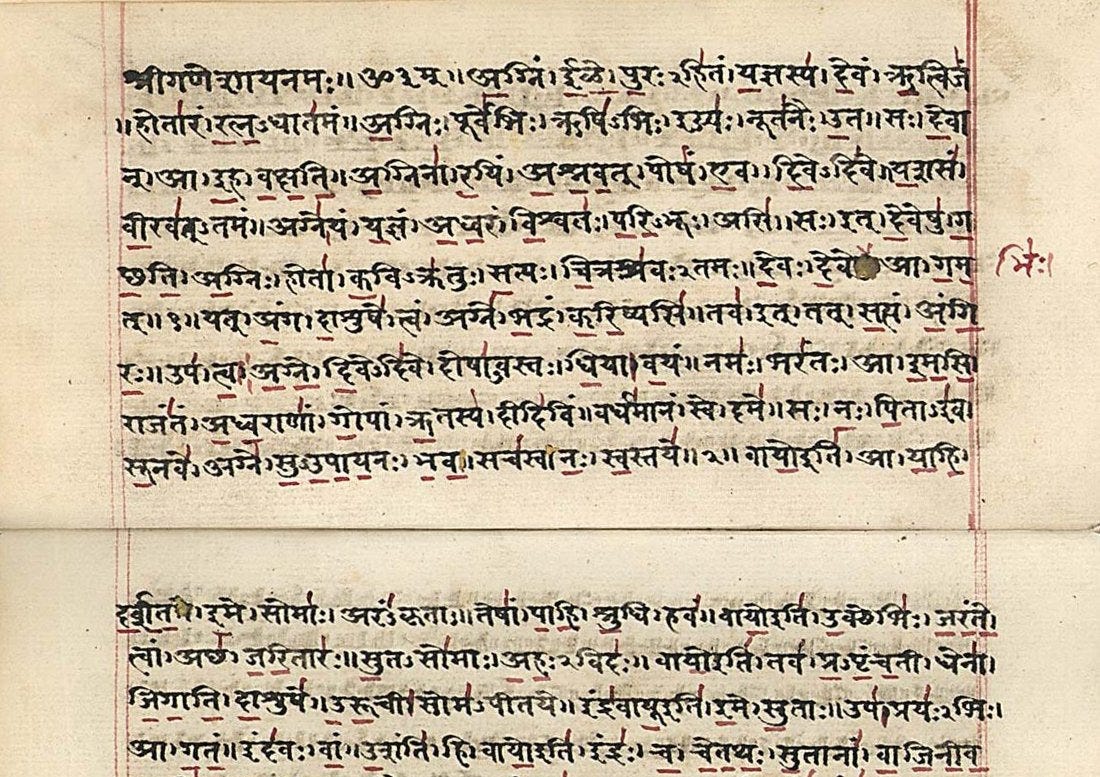 श्रीगणेशायनमः॥ॐ३म्॥अग्निं।ईळे।पुरःऽहितं।यज्ञस्य।देवं।ऋत्विजं
।होतारं।रत्नऽधातमं॥अग्निः।पूर्वेभिः।ऋषिऽभिः।ईड्यः।नूतनैः।उत॥सः।देवा
न्।आ।इह।वक्षति॥अग्निना।रयिं।अश्नवत्।पोषं।एव।दिवेऽदिवे॥यशसं
वीरवत्ऽतमं॥अग्ने।यं।यज्ञं।अध्वरं।विश्वतः।परिऽभूः।असि॥सः।इत्।देवेषु।ग
च्छति।अग्निः।होता।कविऽक्रतुः।सत्यः।चित्रश्रवःऽतमः॥देवः।देवे आ।गम भिः।
त्॥१॥यत्।अंग।दाशुषे।त्वं।अग्ने।भद्रं।करिष्यसि॥तव।इत्।तत्।सत्यं।अंगि
रः॥उप।त्वा।अग्ने।दिवेऽदिवे।दोषाऽवस्तः।धिया।वयं॥नमः।भरंतः।आ।इमसि
राजंतं।अध्वराणां।गोपां।ऋतस्य।दीदिविं॥वर्धमानं।स्वे।दमे॥सः।नः।पिताऽइव
सूनवे।अग्ने।सुऽउपायनः।भव॥सचस्व।नः।स्वस्तये॥२॥वायोइति।आ।याहि।
दर्शत।इमे।सोमाः।अरंऽकृताः॥तेषां।पाहि।श्रुधि।हवं॥वायोइति।उक्थेभिः।जरंते
त्वां।अच्छ।जरितारः॥सुतऽसोमाः।अहःऽविदः॥वायोइति।तव।प्रऽपृंचती।धेना।
जिगाति।दाशुषे॥उरूची।सोमऽपीतये॥इंद्रवायूइति।इमे।सुताः॥उप।प्रयःऽभिः।
आ।गतं॥इंदवः।वां।उशंति।हि।वायोइति।इंद्रः।च।चेतथः।सुतानां।वाजिनीव